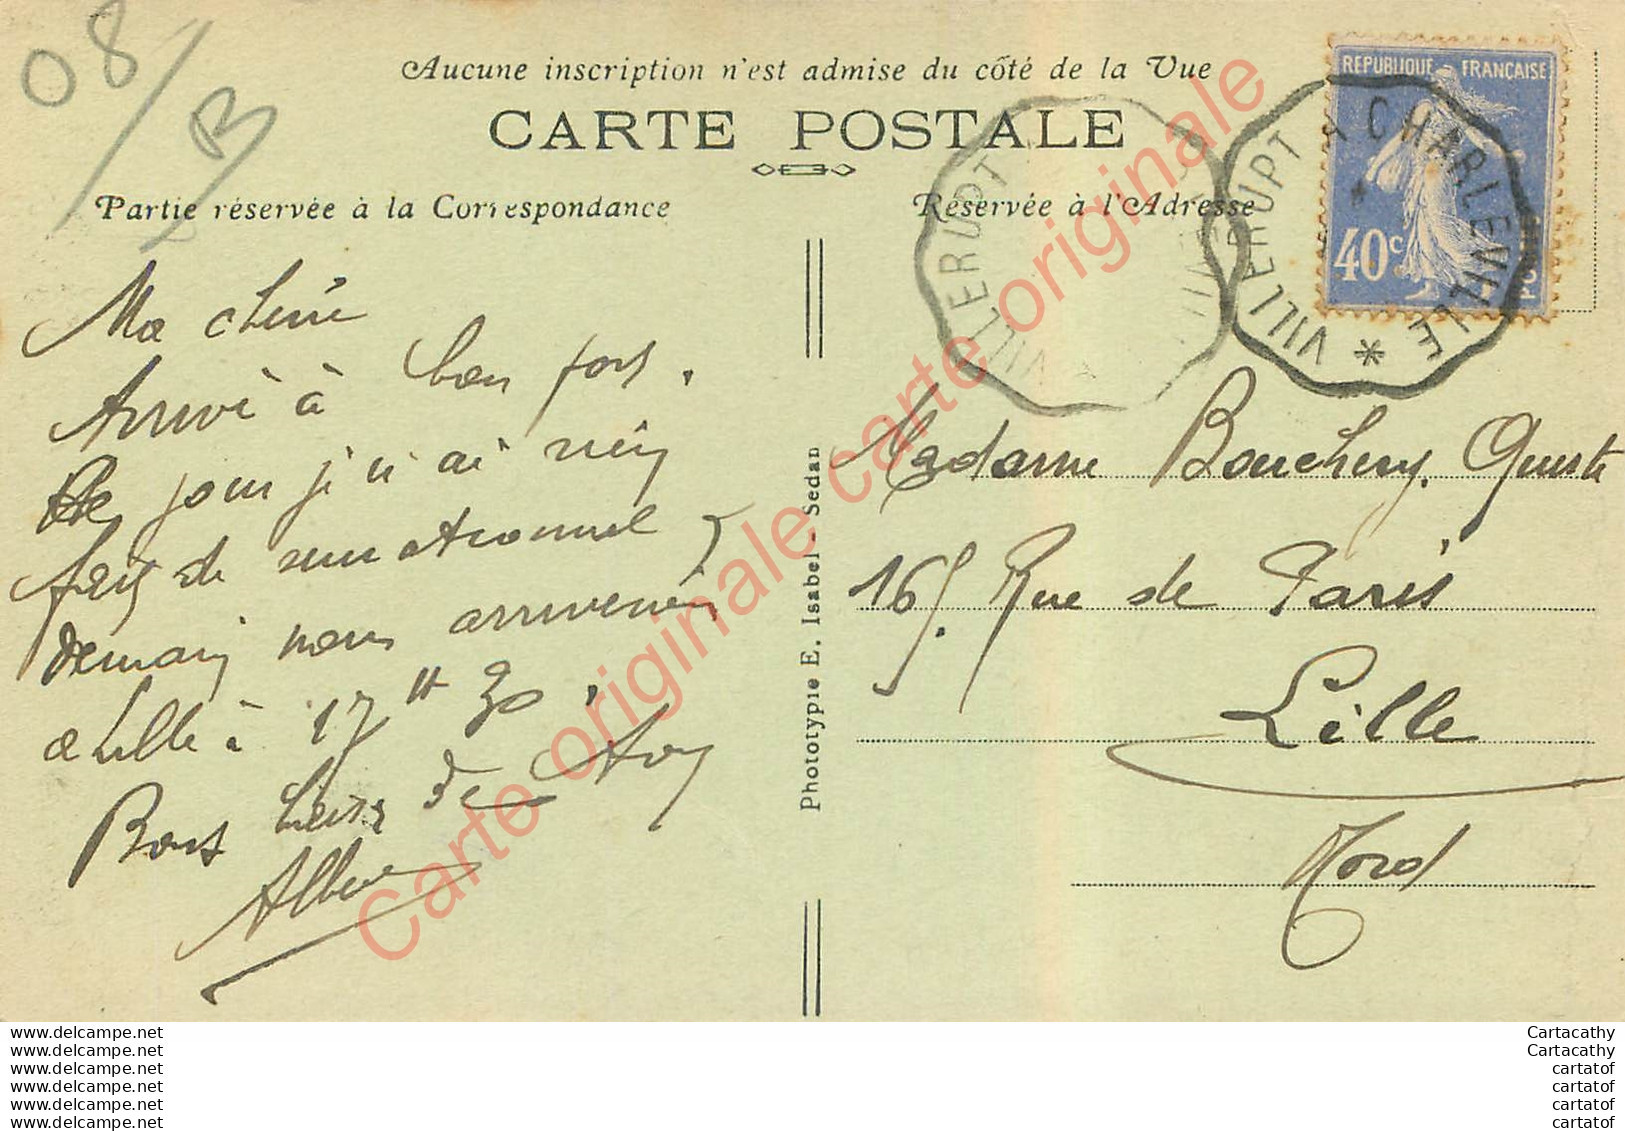 08/B
Aucune inscription n'est admise du côté de la Vue
CARTE POSTALE
Partie réservée à la Correspondance
Réservée à l'Adresse
RÉPUBLIQUE FRANÇAISE
40c
POSTES
VILLERUPT A CHARLEVILLE *
VILLERUPT
Ma chérie
Arrivé à bon port.
Ce jour je n'ai rien
fais de sensationnel
demain nous arriverons
a Lille à 17 H 30.
Bons baisers de Ton
Albert
Phototypie E. Isabel - Sedan
Madame Bouchery
165 Rue de Paris
Lille
Nord
Carte originale carte originale
www.delcampe.net
www.delcampe.net
www.delcampe.net
www.delcampe.net
www.delcampe.net
www.delcampe.net
Cartacathy
Cartacathy
cartatof
cartatof
cartatof
cartatof